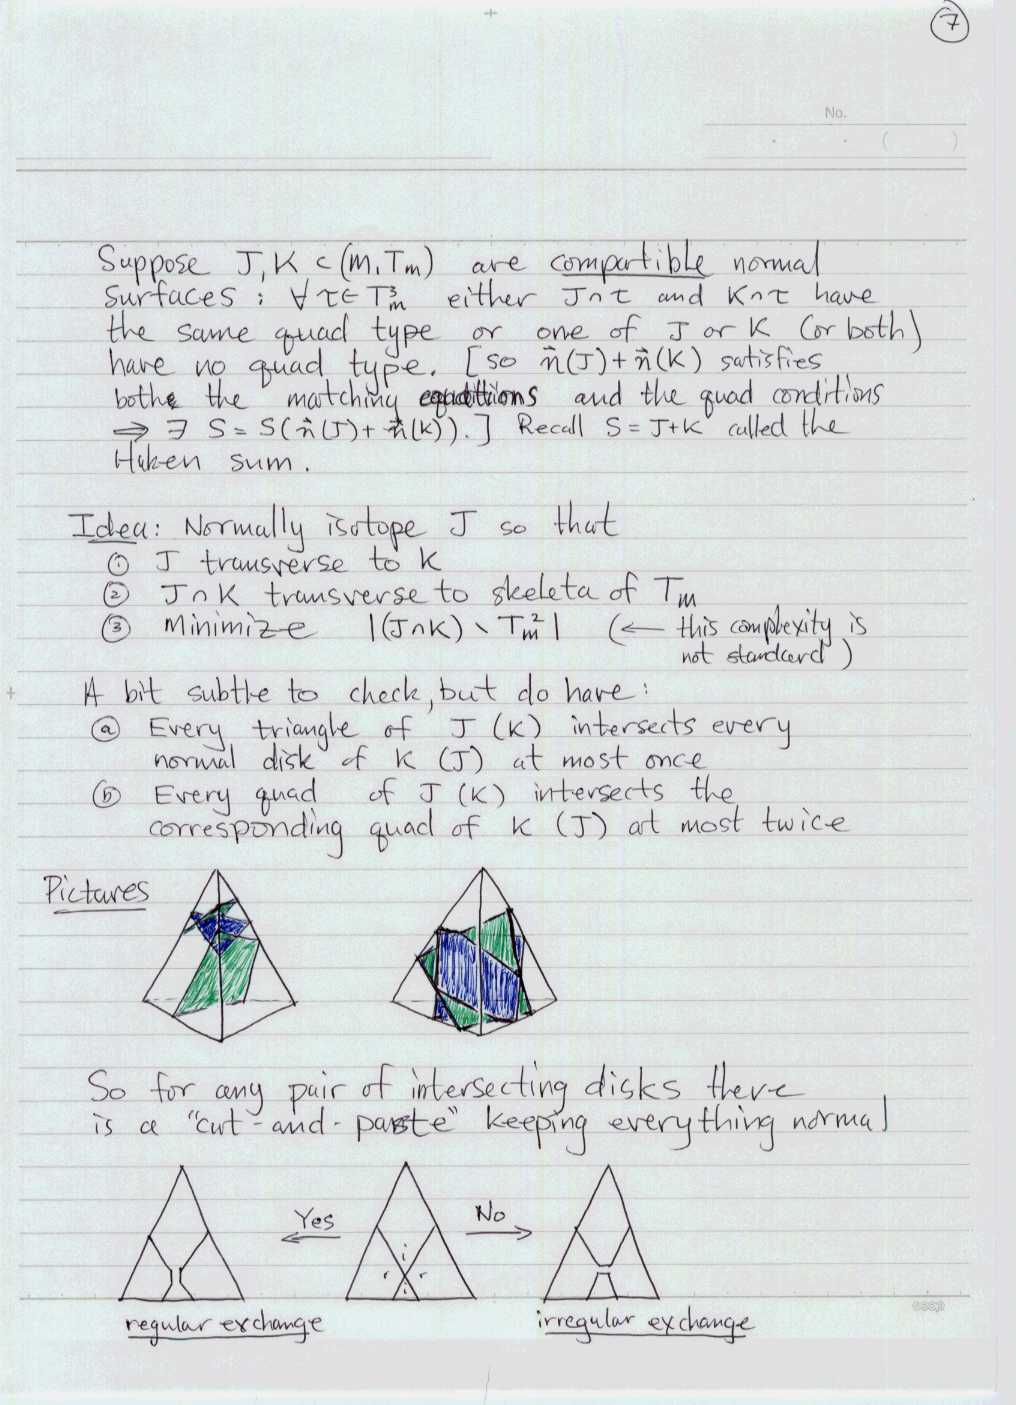 7
No.
Suppose J, K ⊂ (M, T_M) are compatible normal
surfaces : ∀ τ ∈ T_M^3 either J∩τ and K∩τ have
the same quad type or one of J or K (or both)
have no quad type. [so n⃗(J)+n⃗(K) satisfies
both the matching equations and the quad conditions
⇒ ∃ S = S(n⃗(J)+n⃗(K)).] Recall S = J+K called the
Haken sum.
Idea: Normally isotope J so that
① J transverse to K
② J∩K transverse to skeleta of T_M
③ Minimize |(J∩K) \ T_M^2| (← this complexity is
not standard)
A bit subtle to check, but do have:
ⓐ Every triangle of J (K) intersects every
normal disk of K (J) at most once
ⓑ Every quad of J (K) intersects the
corresponding quad of K (J) at most twice
Pictures
So for any pair of intersecting disks there
is a "cut-and-paste" keeping everything normal
Yes No
i
r r
i
regular exchange irregular exchange